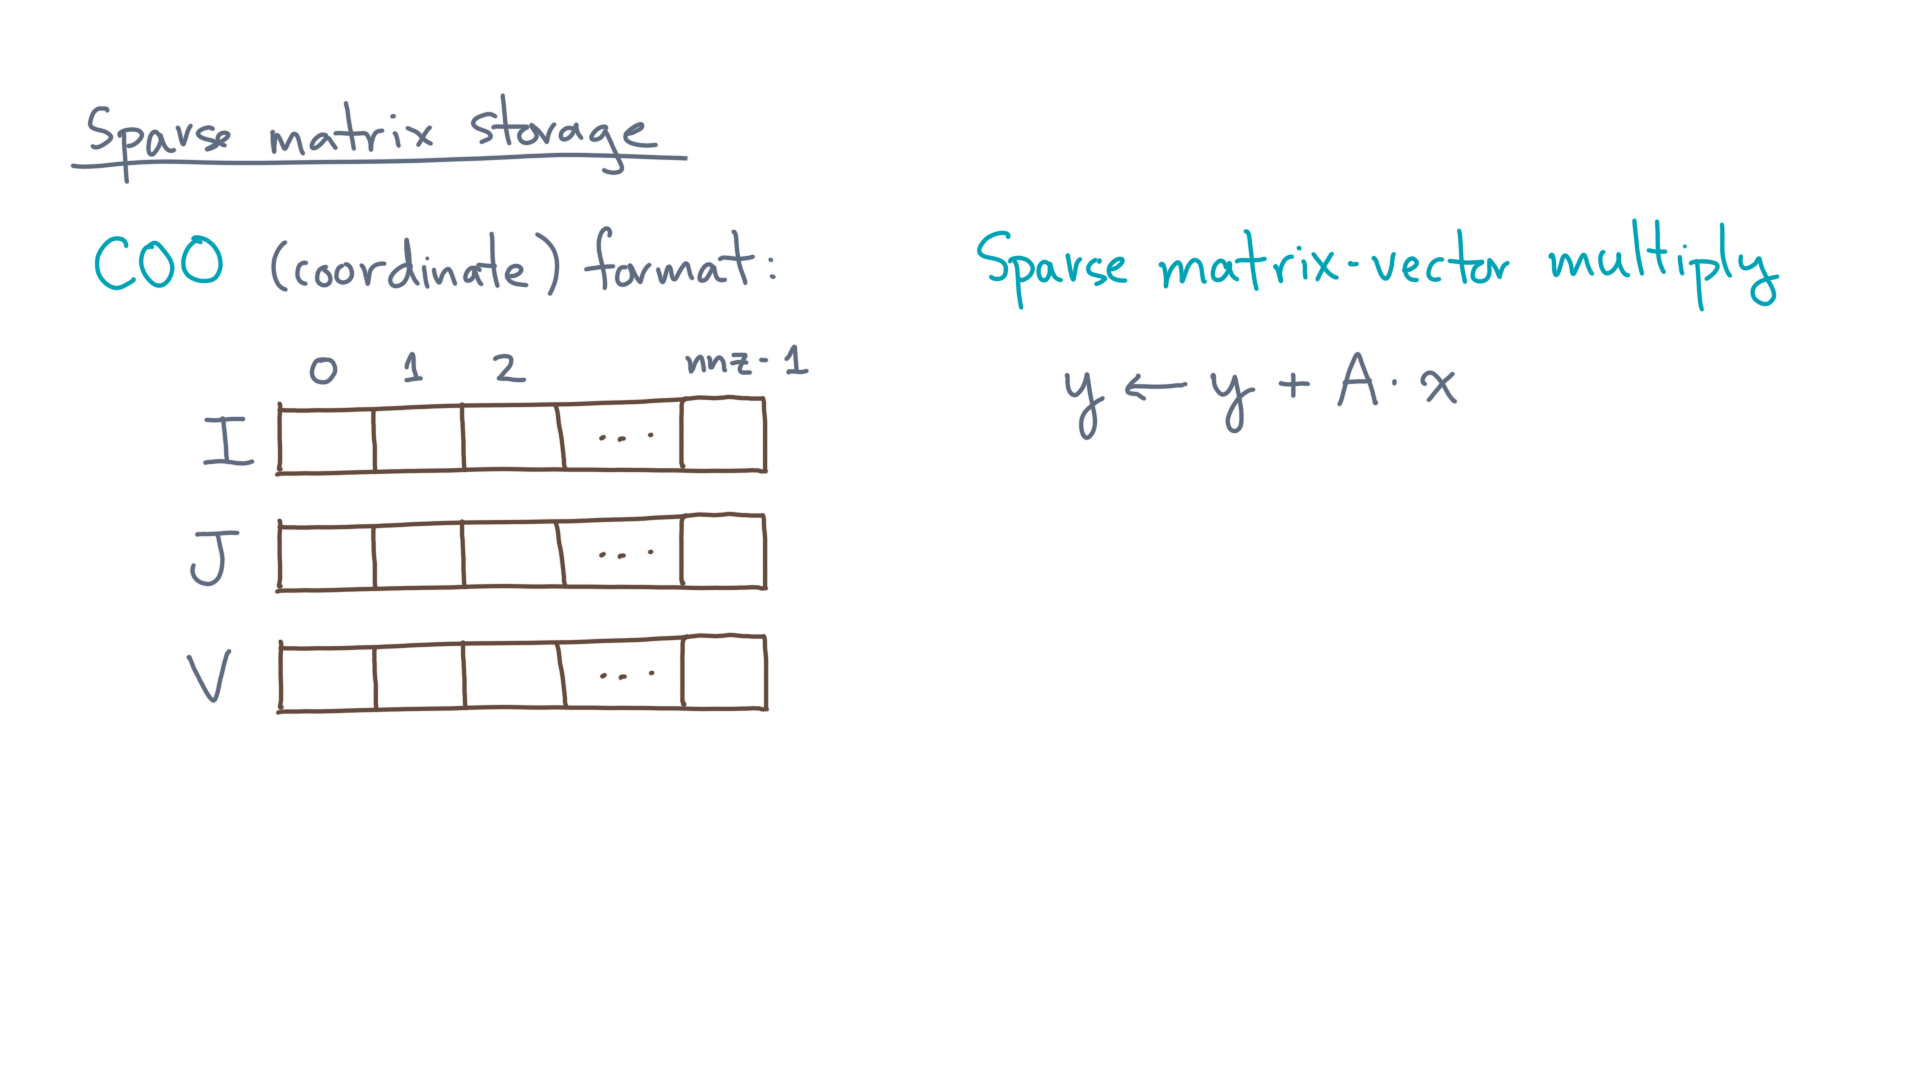 Sparse matrix storage
COO (coordinate) format:
0 1 2 nnz-1
I ...
J ...
V ...
Sparse matrix-vector multiply
y ← y + A · x